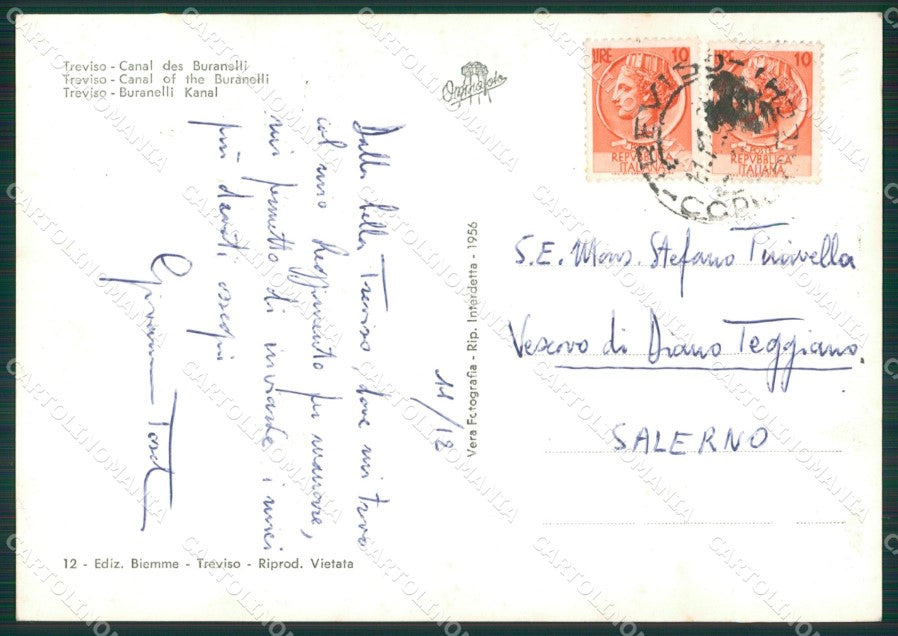 Treviso - Canal des Buranelli
Treviso - Canal of the Buranelli
Treviso - Buranelli Kanal
Dalla bella Treviso, dove mi trovo
col mio Reggimento per manovre,
mi permetto di inviarLe i miei
più devoti ossequi
Giovanni
11/12
12 - Ediz. Biemme - Treviso - Riprod. Vietata
Vera Fotografia - Rip. Interdetta - 1956
LIRE 10
REPVBBLICA
ITALIANA
LIRE 10
POSTE
REPVBBLICA
ITALIANA
TREVISO
S.E. Mons. Stefano Tinivella
Vescovo di Diano Teggiano.
SALERNO
CARTOLINOMANIA